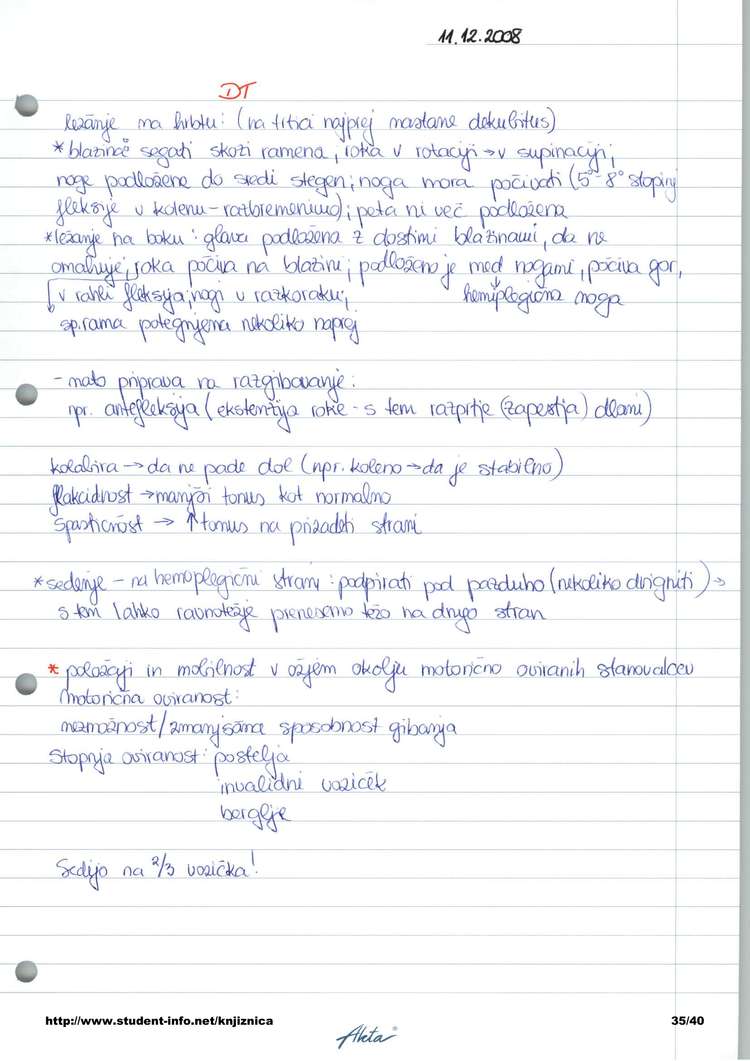 11.12.2008
DT
ležanje na hrbtu: (na trtici najprej nastane dekubitus)
* blazince segati skozi ramena, roka v rotaciji → v supinaciji;
noge podložene do sredi stegen; noga mora počivati (5°-8° stopinj
fleksije v kolenu - razbremenimo); peta ni več podložena
* ležanje na boku: glava podložena z dostimi blazinami, da ne
omahuje, roka počiva na blazini; podloženo je med nogami, počiva gor,
v rahli fleksija, nogi v razkoraku; hemiplegična noga
sp. rama potegnjena nekoliko naprej
- nato priprava na razgibavanje:
npr. antefleksija (ekstenzija roke - s tem razprtje (zapestja) dlani)
kolabira → da ne pade dol (npr. koleno → da je stabilno)
flakcidnost → manjši tonus kot normalno
Spastičnost → ↑ tonus na prizadeti strani
* sedenje - na hemoplegični strani: podpirati pod pazduho (nekoliko dvigniti) →
s tem lahko ravnotežje prenesemo težo na drugo stran
* položaji in mobilnost v ožjem okolju motorično oviranih stanovalcev
Motorična oviranost:
nezmožnost/zmanjšana sposobnost gibanja
Stopnja oviranost: postelja
invalidni voziček
berglje
Sedijo na 2/3 vozička!
http://www.student-info.net/knjiznica
35/40
Aleta